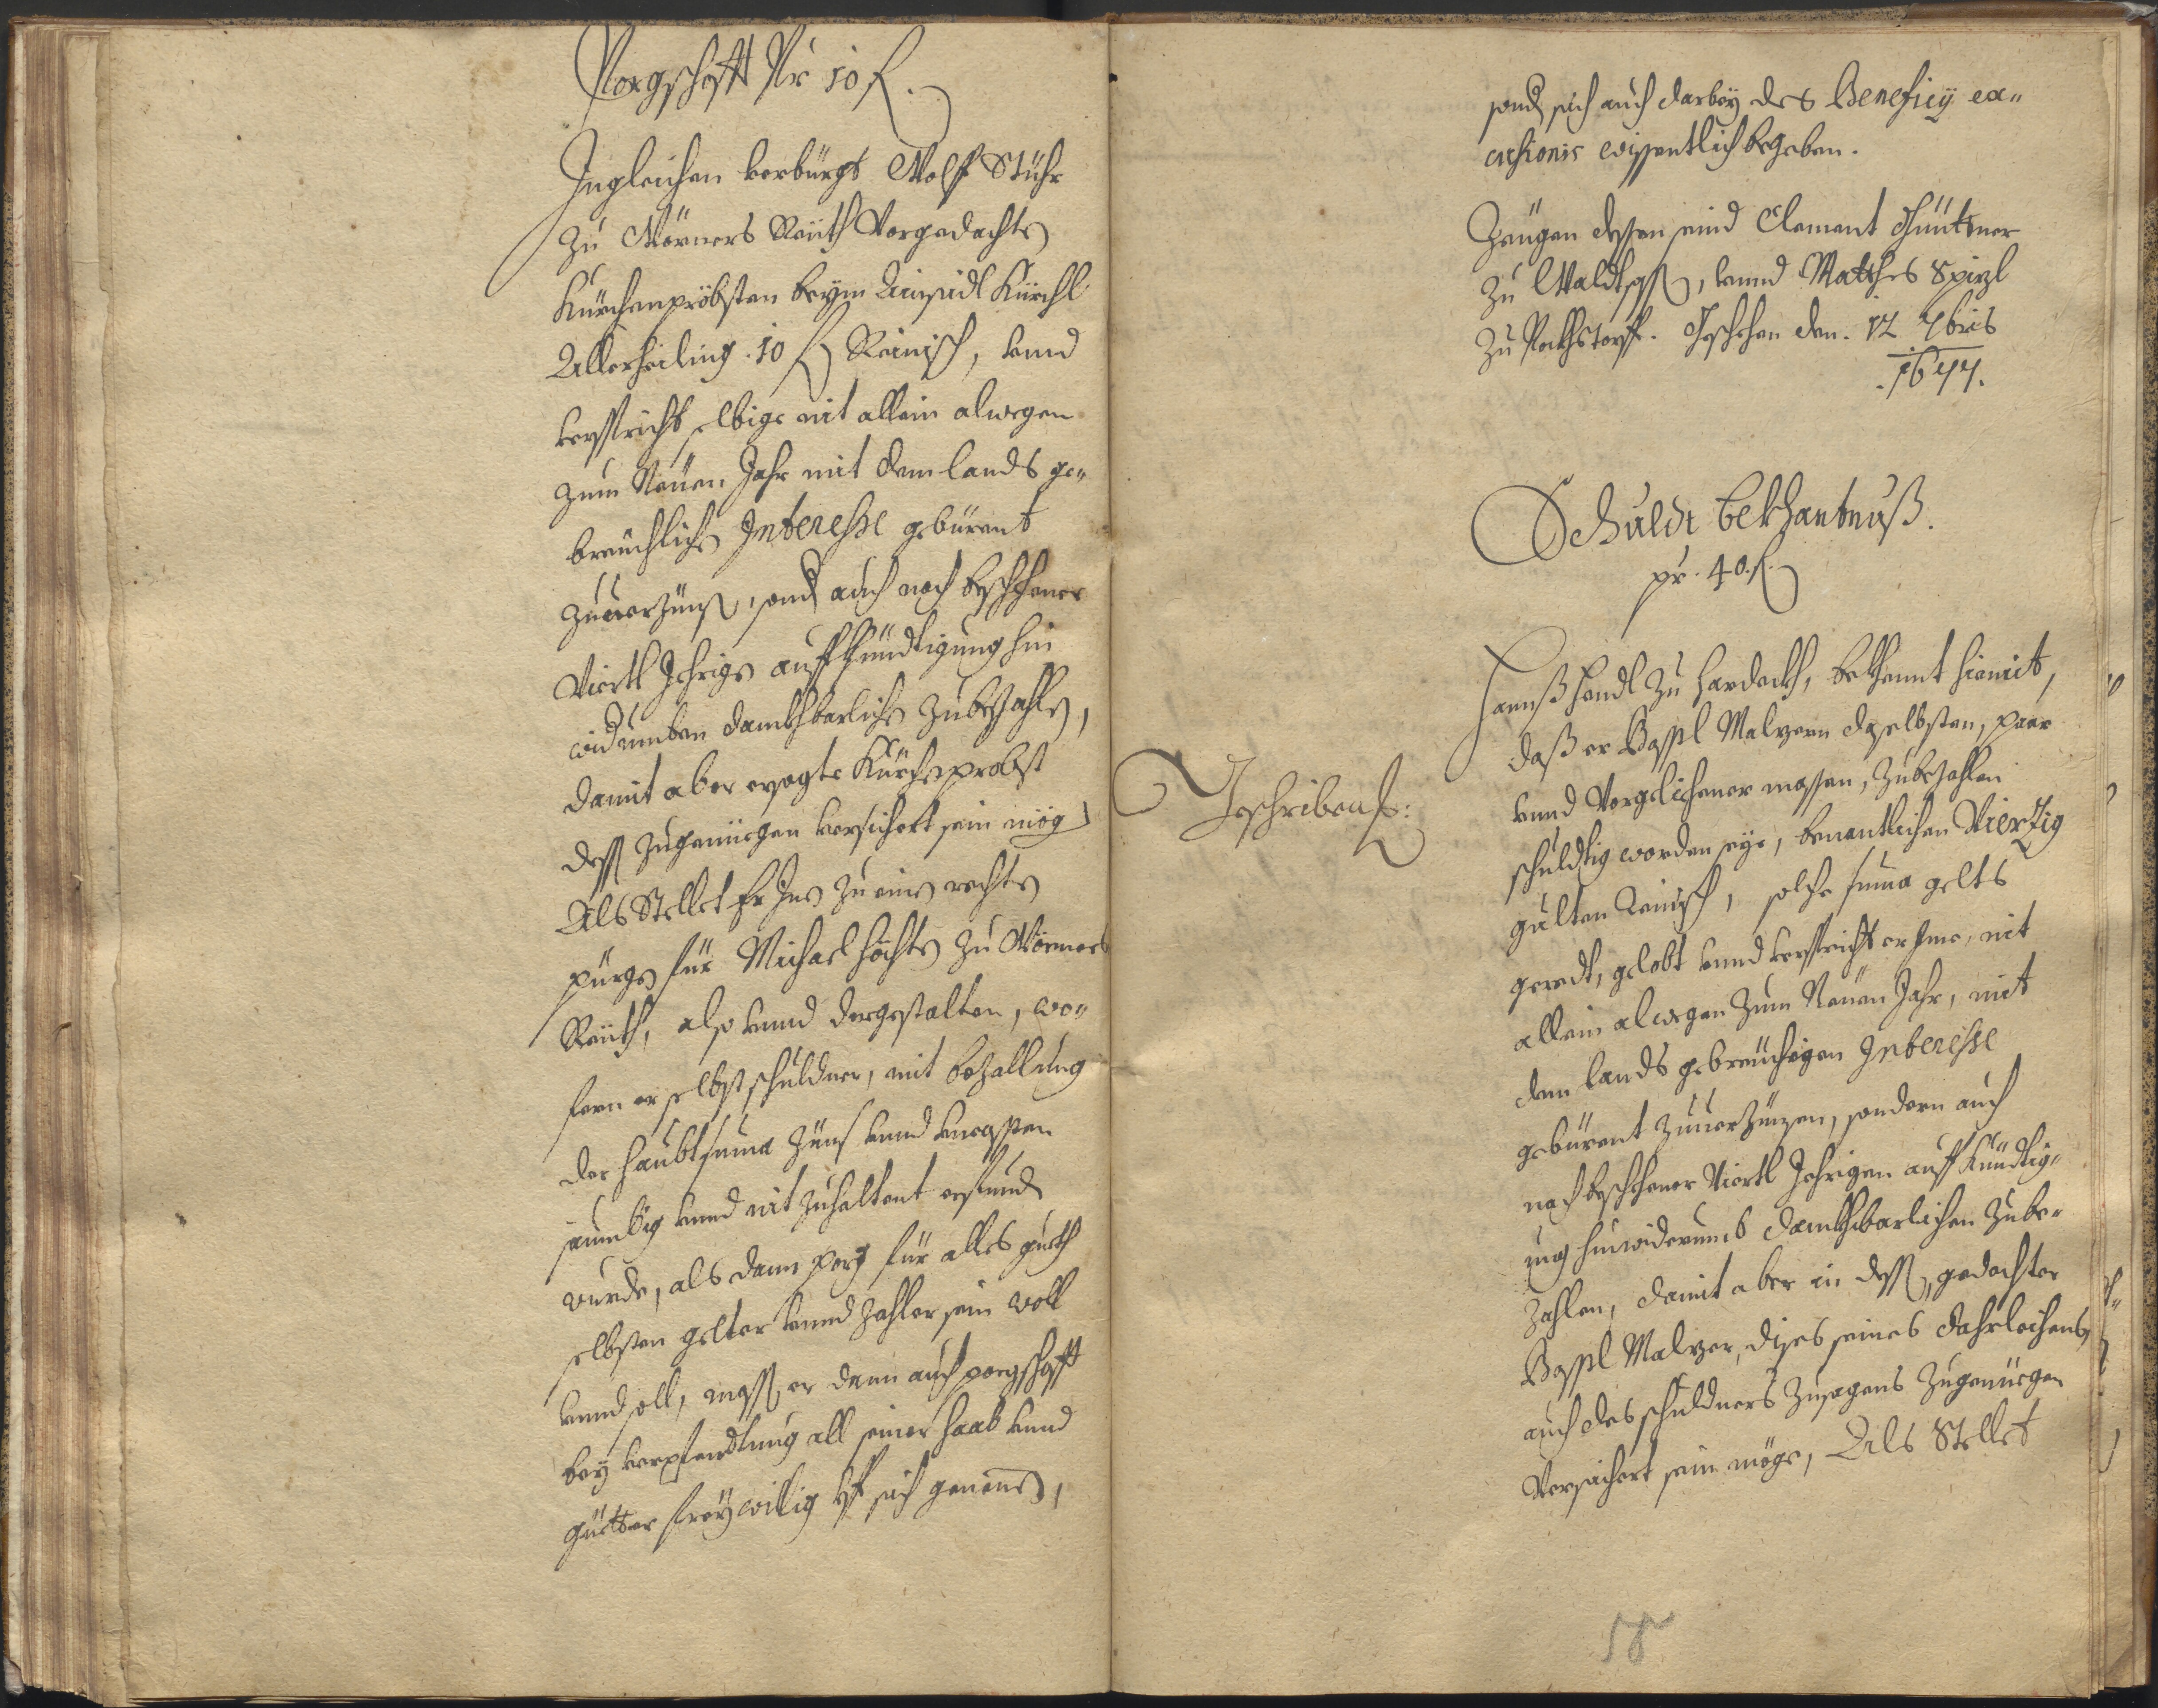 Porgschafft Pr 10 f.
Ingleichen verbürgt Wolf Stühr
zu Wörners Reüth Vorgedachten
Kürchenpröbsten beÿm Ainsidl Kürchl
Allerheiling .10 f Reinisch, vnnd
versspricht selbige nit allein alwegen
zum Neüen Jahr mit dem lands ge„
breüchlichen Interesse gebürent
zuuerzünsen, sond auch nach beschehener
Viertl Jehrigen auffkhündtigung hin
widrumben danckhbarlichen zubezahlen,
damit aber ersagte Kürchenprobst
dessen zugenüegen versichert sein mögen
Als Stellet Er Inen zu einen rechten
pürgen für Michael Höchten zu Wörners
Reüth, also vnnd dergestalten, wo„
fern er selbst schuldner, mit bezallung
der haubtsuma Zünß vnnd vncossten
saumbig vnnd nit Zuhaltent erfunden
wurde, als dann porg für alles gueth
selbsten gelter vnnd zahler sein woll
vnnd soll, massen er dann auch porgschafft
beÿ verpfendtung all seiner haab vnnd
güetter freÿwillig vf sich genomen,
sond sich auch darbeÿ des Beneficÿ ex„
cussionis wissentlich begeben.
Zeügen dessen seind Clement Güntner
zu Waldtsassen, vnnd Matthes Spizl
zu Pechtstorff. Geschehen den. 12 7bris
.1644.
Schuldt bekhantnuß.
pr. 40. f.
Geschriben:
Hannß Hendl zu Hardeckh, bekhennt hiemit,
daß er Baßtl Malzern daselbsten, paar
vnnd Vorgelichener massen, zubezahlen
schuldtig worden seÿe, benantlichen Vierzig
gulten Reinisch, solche suma gelts
geredt, gelobt vnnd versspricht er Ime, nit
allein alwegen zum Neüen Jahr, mit
dem lands gebreüchigen Interesse
gebürent zuuerzünsen, sondern auch
nach beschehener Viertl Jehrigen auff Kündtig„
ung hinwiderumb danckhbarlichen zube„
zahlen, damit aber in dessen, gedachter
Baßtl Malzer, dises seines dahrleichens,
auch des schuldners Zusagens zugenüegen
Versichert sein möge, Als Stellet
58